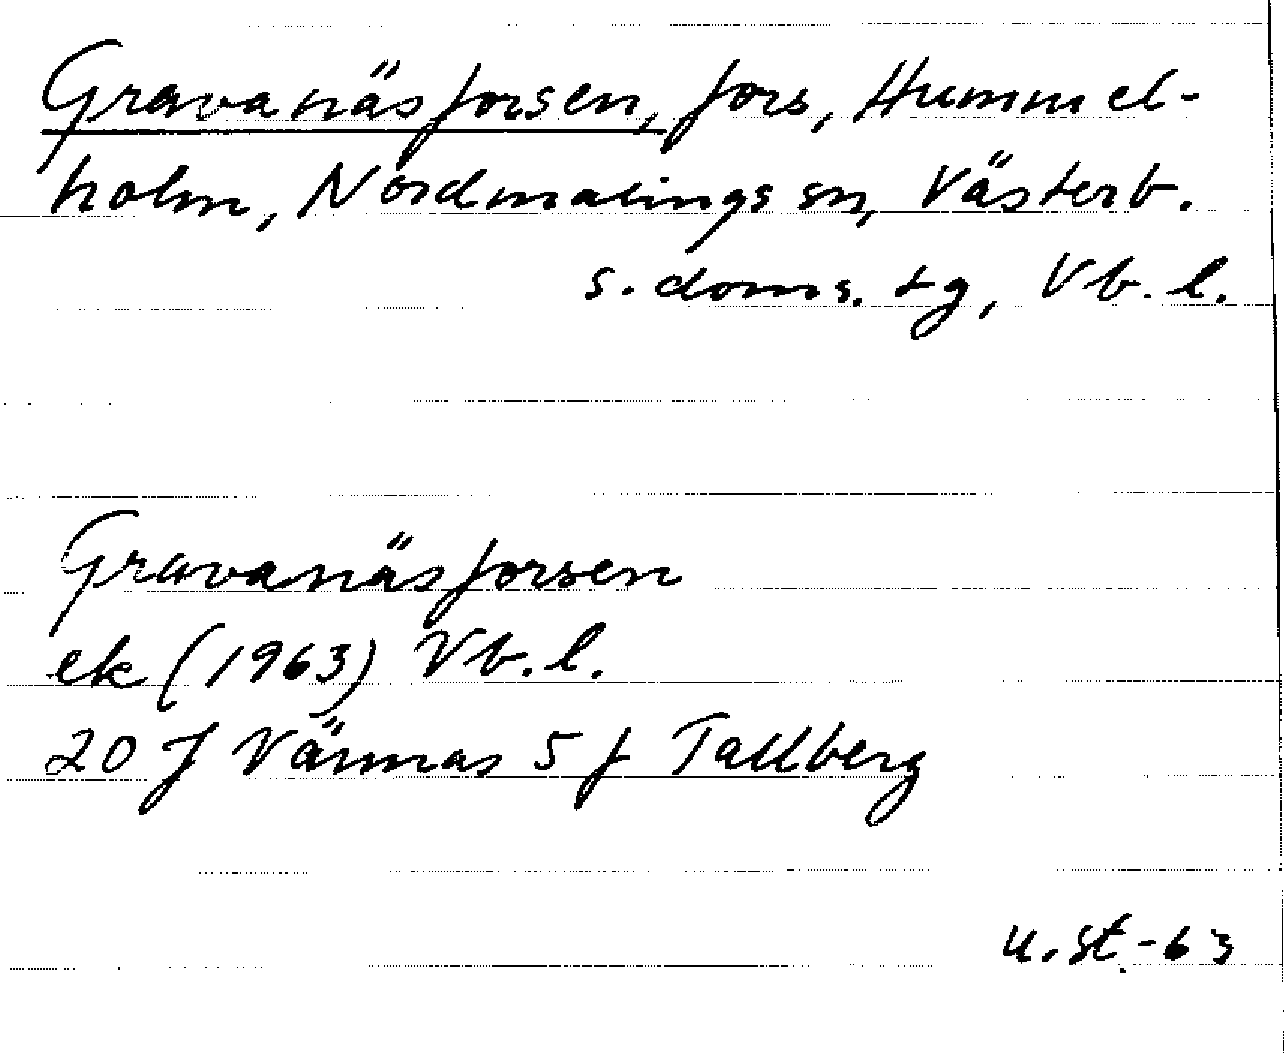 Gravanäsforsen, fors, Hummel-
holm, Nordmalings sn, Västerb.
s. doms. tg, Vb. l.
Gravanäsforsen
ek (1963) Vb. l.
20 J Vännäs 5 f Tallberg
u. st. -63